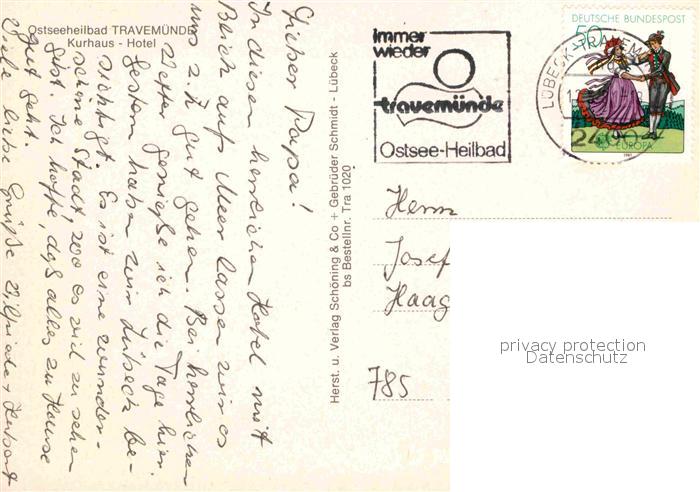 Ostseeheilbad TRAVEMÜNDE
Kurhaus - Hotel
Lieber Papa!
In diesem herrlichen Hotel mit
Blick aufs Meer lassen wir es
uns z. Zt. gut gehen. Bei herrlichem
Wetter genieße ich die Tage hier.
Gestern haben wir Lübeck be-
sichtigt. Es ist eine wunder-
schöne Stadt, wo es viel zu sehen
gibt. Ich hoffe, daß alles zu Hause
gut geht.
Viele liebe Grüße
Herst. u. Verlag Schöning & Co + Gebrüder Schmidt - Lübeck
bs Bestellnr. Tra 1020
immer
wieder
travemünde
Ostsee-Heilbad
LÜBECK-TRAVEM
DEUTSCHE BUNDESPOST
50
EUROPA
1981
Herrn
Josef
Haag
785
privacy protection
Datenschutz